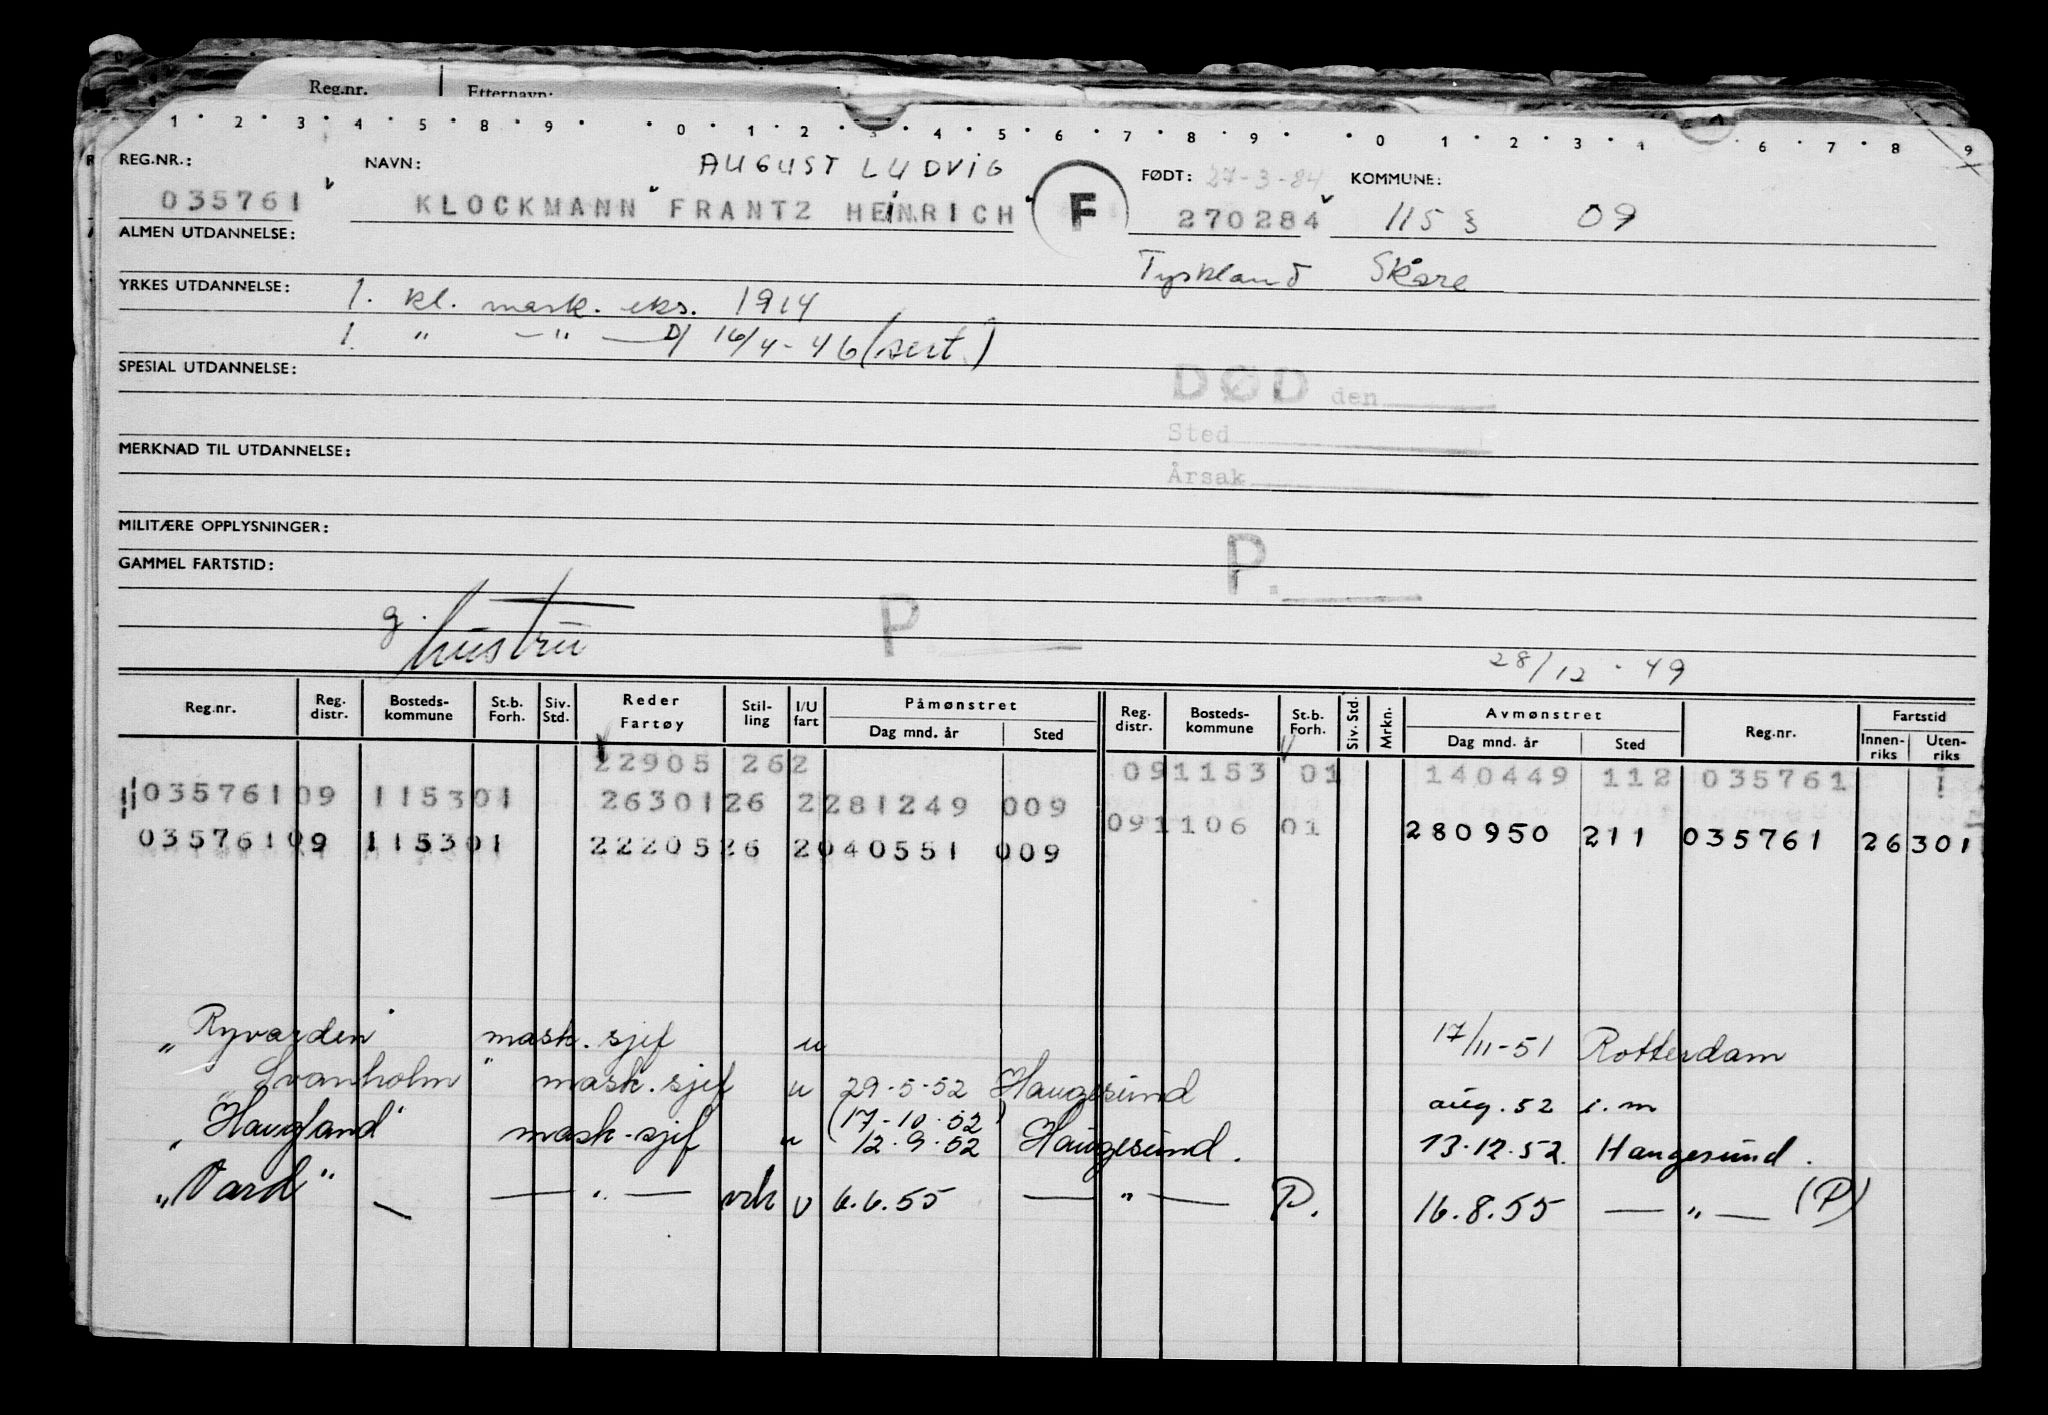 Reg.nr. Etternavn:
1 · 2 · 3 · 4 · 5 · 8 · 9 · · 0 · 1 · 2 · 3 · 4 · 5 · 6 · 7 · 8 · 9 · · 0 · 1 · 2 · 3 · 4 6 · 7 · 8 9
REG.NR.: NAVN: AUGUST LUDVIG FØDT: 27-3-84 KOMMUNE:
035761 KLOCKMANN FRANTZ HEINRICH F 270284 1153 09
ALMEN UTDANNELSE:
Tyskland Skåre
YRKES UTDANNELSE: 1. kl. mask. eks. 1914
1. " — " — D/ 16/4-46 (sert.)
SPESIAL UTDANNELSE:
DØD den
Sted
MERKNAD TIL UTDANNELSE:
Årsak
MILITÆRE OPPLYSNINGER:
P.
GAMMEL FARTSTID:
g. hustru P
28/12-49
Reg.nr. Reg. distr. Bosteds-kommune St.b. Forh. Siv. Std. Reder Fartøy Stil-ling I/U fart Påmønstret Dag mnd. år Sted Reg. distr. Bosteds-kommune St.b. Forh. Siv. Std. Mrkn. Avmønstret Dag mnd. år Sted Reg.nr. Fartstid Innen-riks Uten-riks
22905 262 091153 01 140449 112 035761
035761 09 1153 01 26301 26 2 281249 009 091106 01 280950 211 035761 26301
035761 09 1153 01 22205 26 2 040551 009
"Ryvarden" mask. sjef u 17/11-51 Rotterdam
"Svanholm" mask. sjef u 29-5-52 Haugesund aug. 52 i.m
(17-10-52)
"Haugland" mask-sjef u 12.9.52 Haugesund. 13.12.52. Haugesund.
"Vard" — — " — vik U 6.6.55 — " — P. 16.8.55 — " — (P)